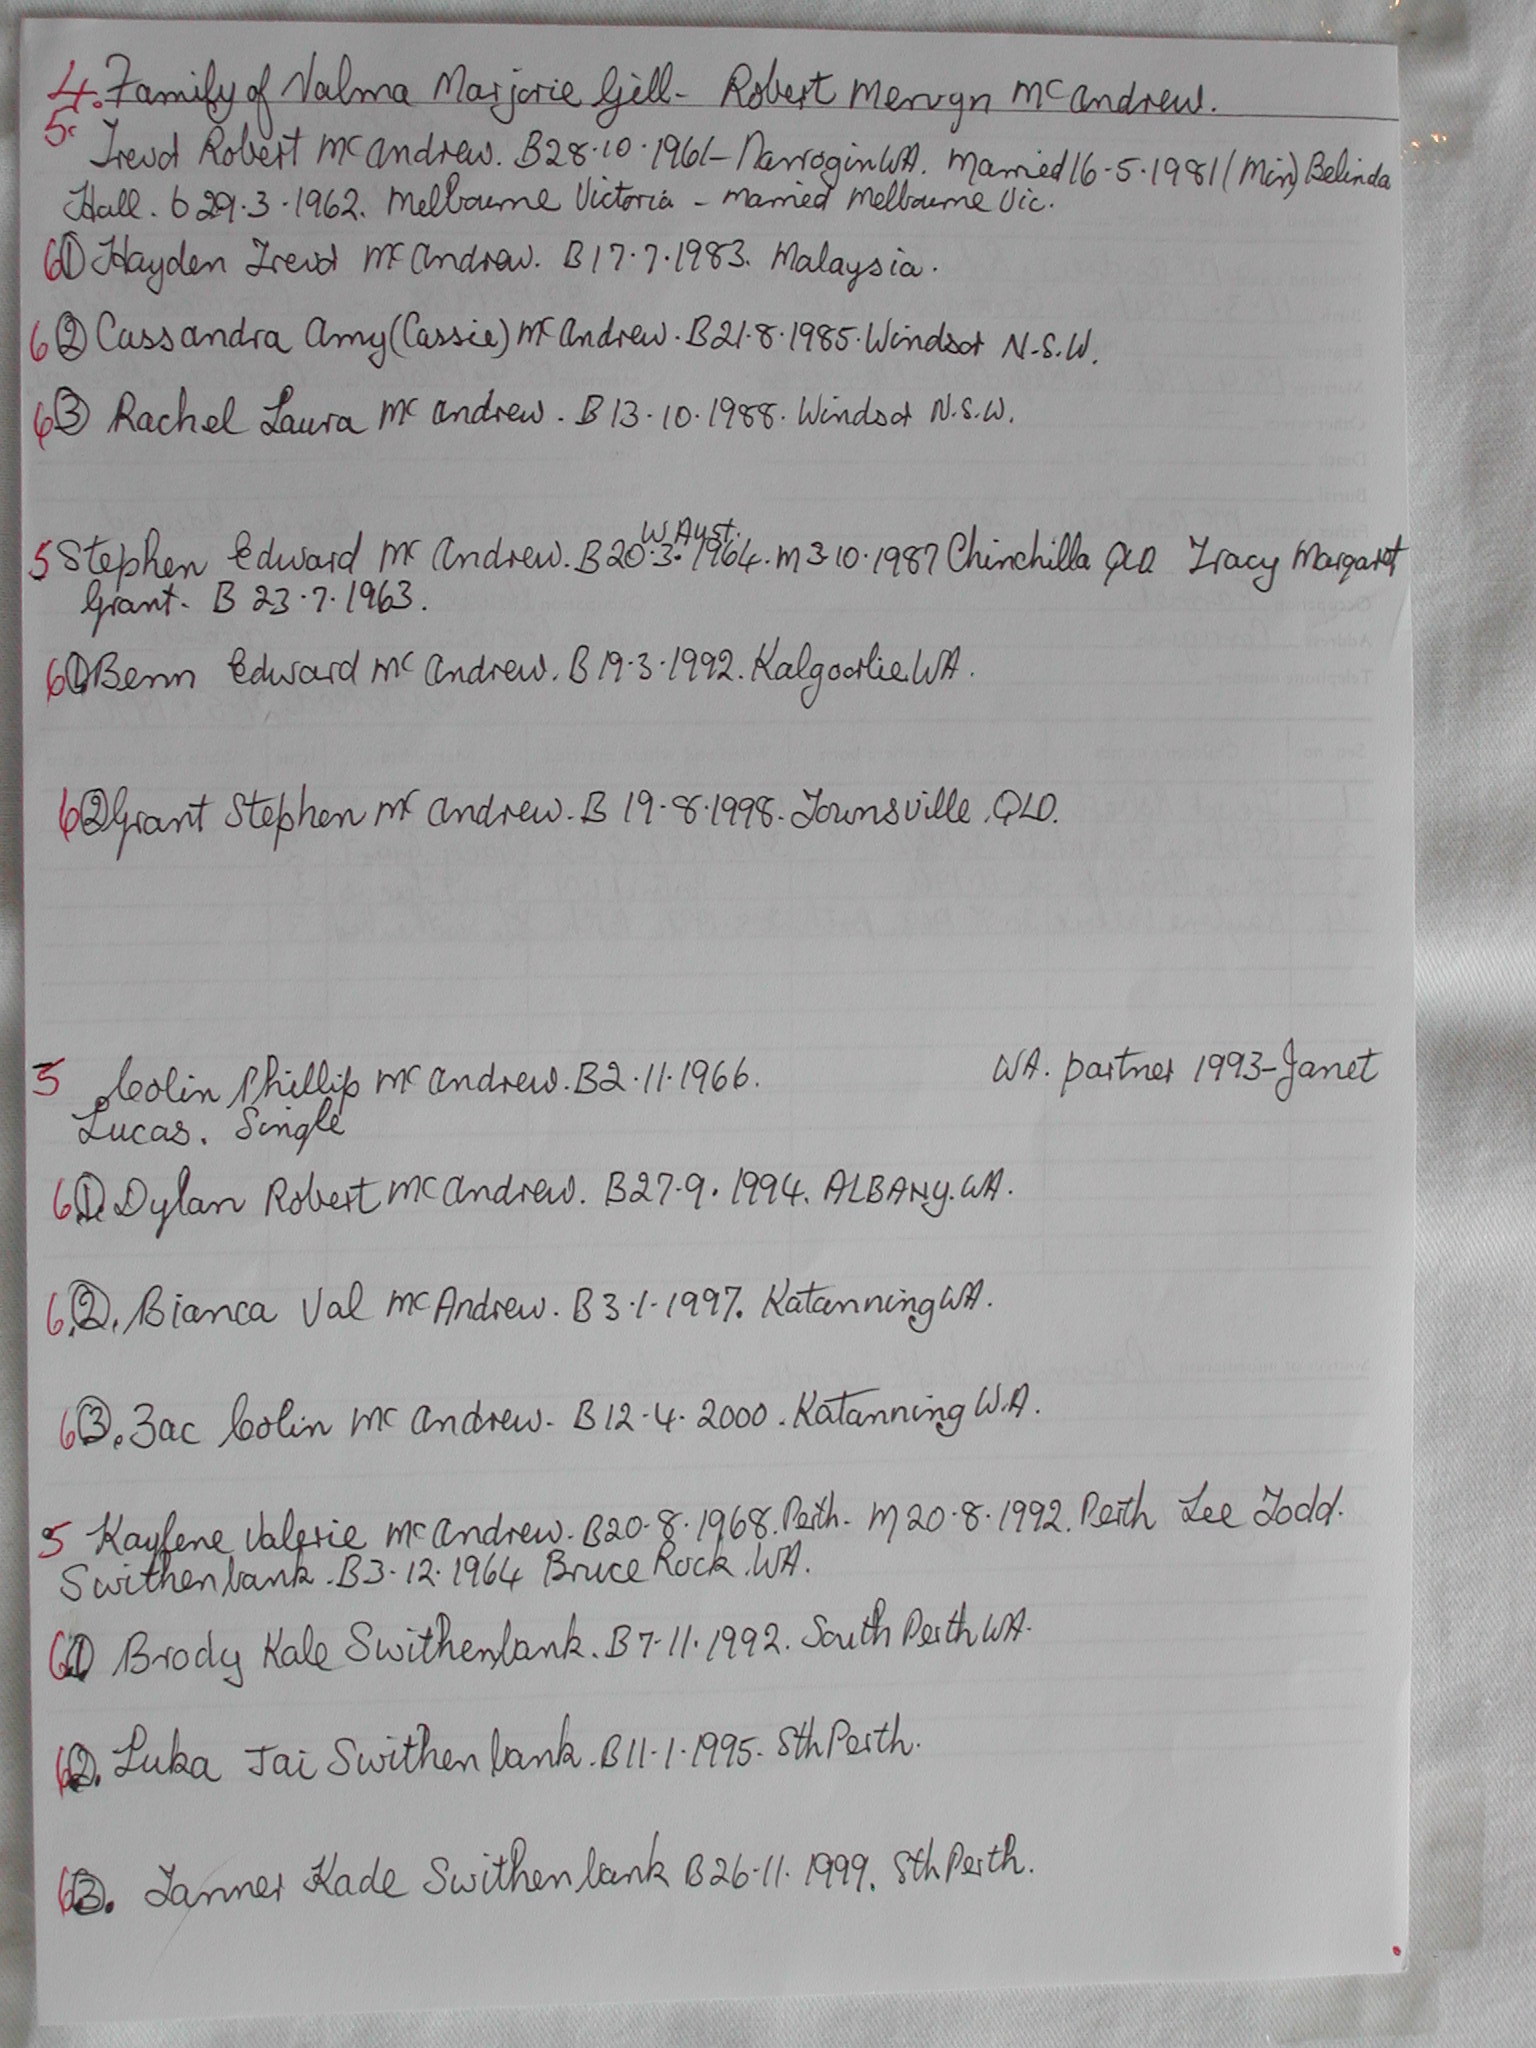 4. Family of Valma Marjorie Gill - Robert Mervyn McAndrew.
5. Trevor Robert McAndrew. B28.10.1961 - Narrogin WA. Married 16-5-1981 (Min) Belinda
Hall. b 29.3.1962. Melbourne Victoria - married Melbourne Vic.
6 ① Hayden Trevor McAndrew. B17.7.1983. Malaysia.
6 ② Cassandra Amy (Cassie) McAndrew. B21.8.1985. Windsor N.S.W.
6 ③ Rachel Laura McAndrew. B13.10.1988. Windsor N.S.W.
W Aust.
5 Stephen Edward McAndrew. B20.3.1964. M 3.10.1987 Chinchilla QLD Tracy Margaret
Grant - B 23.7.1963.
6 ① Benn Edward McAndrew. B19.3.1992. Kalgoorlie. WA.
6 ② Grant Stephen McAndrew. B 19.8.1998. Townsville. QLD.
5 Colin Phillip McAndrew. B2.11.1966. WA. partner 1993 - Janet
Lucas. Single
6 ①. Dylan Robert McAndrew. B27.9.1994. ALBANY. WA.
6. ②. Bianca Val McAndrew. B3.1.1997. Katanning WA.
6 ③. Zac Colin McAndrew. B12.4.2000. Katanning W.A.
5 Kaylene Valerie McAndrew. B20.8.1968. Perth. M20.8.1992. Perth Lee Todd.
Swithenbank. B3.12.1964 Bruce Rock. WA.
6 ① Brody Kale Swithenbank. B7.11.1992. South Perth WA.
6 ②. Luka Jai Swithenbank. B11.1.1995. Sth Perth.
6 ③. Tanner Kade Swithenbank B26.11.1999. Sth Perth.